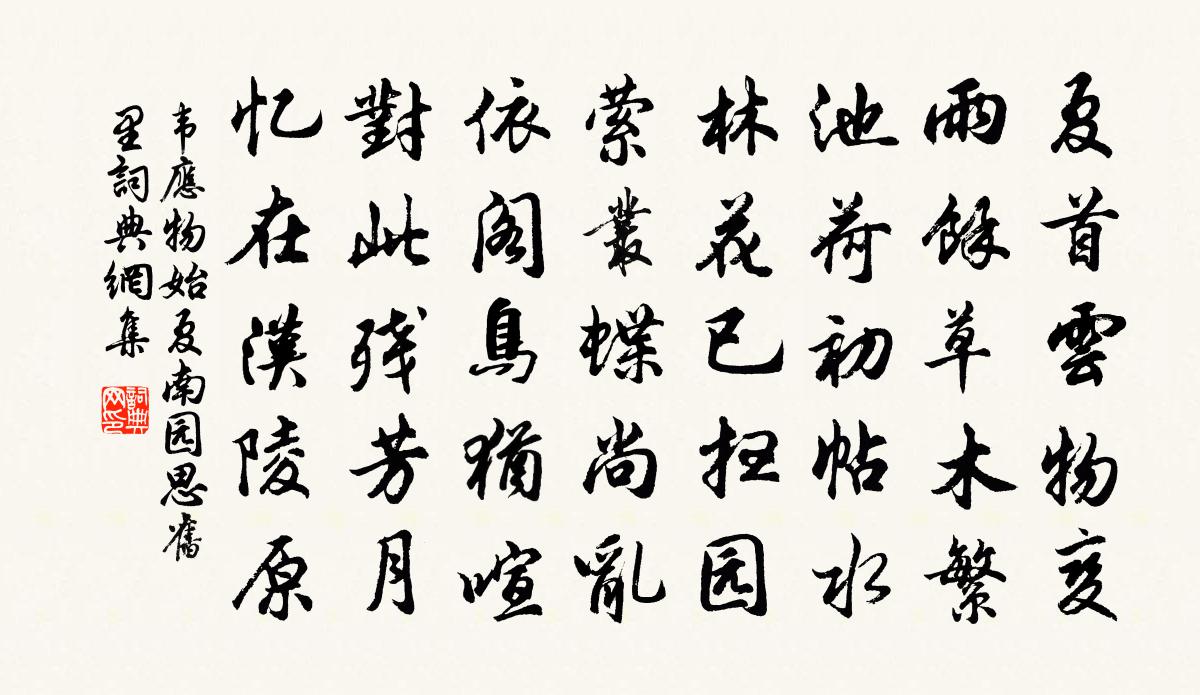 夏首雲物变
雨餘草木繁
池荷初帖水
林花已扫园
萦叢蝶尚亂
依阁鳥猶喧
對此残芳月
忆在漢陵原
韦應物始夏南园思舊
里詞典網集
詞典网印